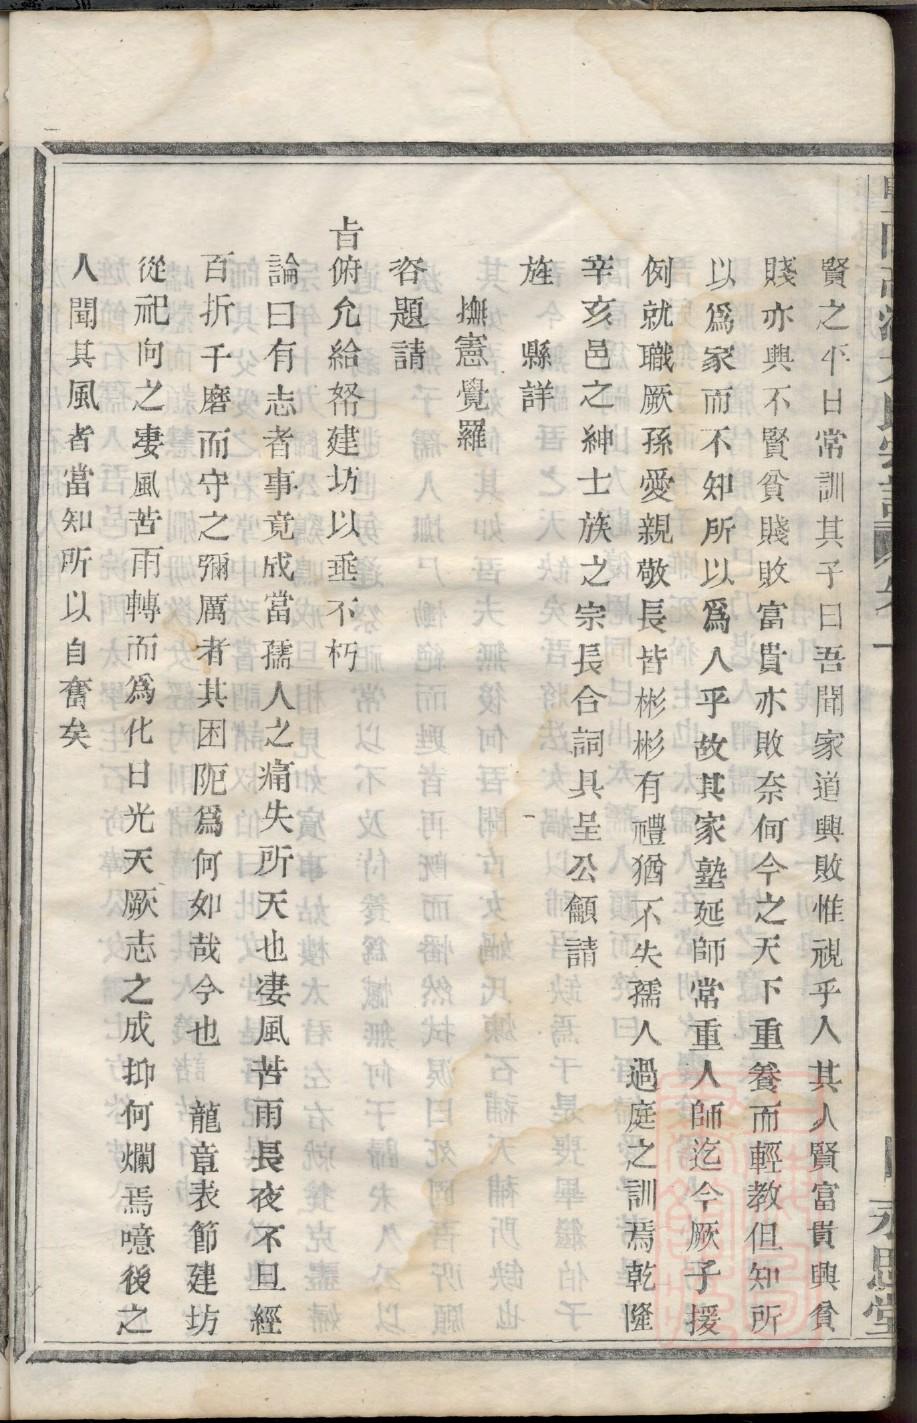 賢之平日常訓其子曰吾聞家道興敗惟視乎人其人賢富貴興貧
賤亦興不賢貧賤敗富貴亦敗奈何今之天下重養而輕教但知所
以爲家而不知所以爲人乎故其家塾延師常重人師迄今厥子援
例就職厥孫愛親敬長皆彬彬有禮猶不失孺人過庭之訓焉乾隆
辛亥邑之紳士族之宗長合詞具呈公籲請
旌 縣詳
撫憲覺羅
咨題請
旨俯允給帑建坊以垂不朽
論曰有志者事竟成當孺人之痛失所天也凄風苦雨長夜不旦經
百折千磨而守之彌厲者其困阨爲何如哉今也 龍章表節建坊
從祀向之凄風苦雨轉而爲化日光天厥志之成抑何爛焉噫後之
人聞其風者當知所以自奮矣
永思堂